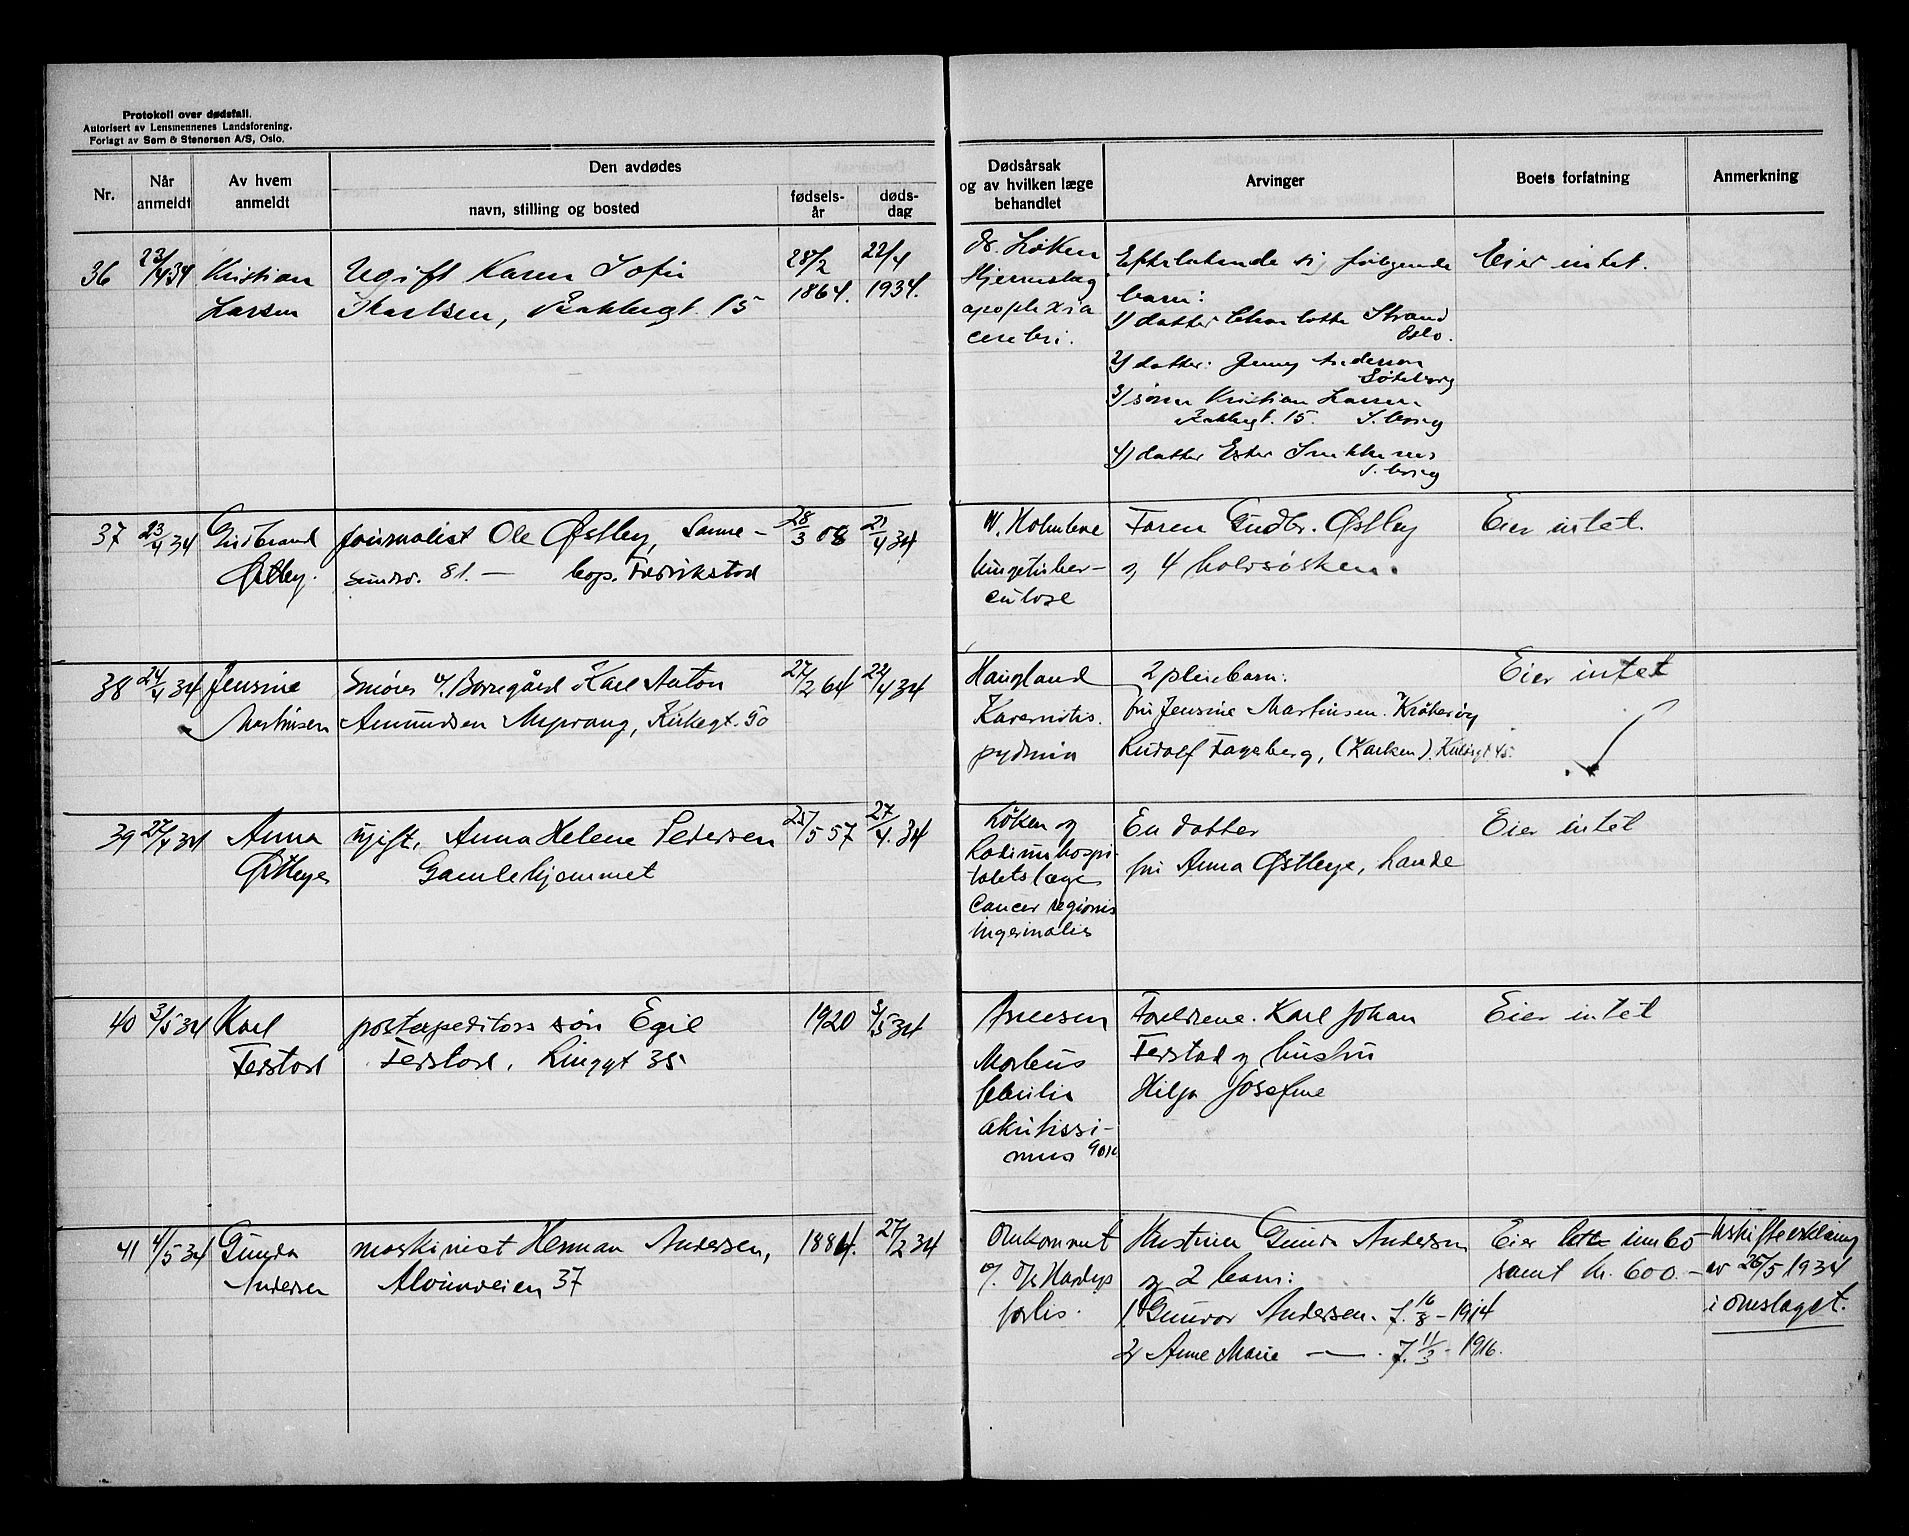 Protokoll over dødsfall.
Autorisert av Lensmennenes Landsforening.
Forlagt av Sem & Stenersen A/S, Oslo.
Nr.
Når anmeldt
Av hvem anmeldt
Den avdødes
navn, stilling og bosted
fødsels-år
døds-dag
Dødsårsak
og av hvilken læge
behandlet
Arvinger
Boets forfatning
Anmerkning
36 23/4 34 Kristian Ugift Karen Sofie 28/2 22/4
Larsen Karlsen, Bakkegt. 15 1864. 1934.
dr. Løken
Hjerneslag
apoplexia
cerebri.
Efterlatende sig følgende
barn:
1) datter Charlotte Strand
Oslo.
2) datter: Jenny Anderson
Göteborg
3) sønn Kristian Larsen
Bakkegt. 15. S.borg
4) datter Ester
S.borg
Eier intet.
37 23/4 34 Gudbrand journalist Ole Østby, Sanne- 28/3 08 21/4 34
Østby. sundv. 81. — bop. Fredrikstad
W. Holmboe
lungetuber-
culose
Faren Gudbr. Østby
og 4 halvsøsken.
Eier intet.
38 24/4 34 Jensine Smører v/ Borregård Karl Anton 27/2 64 22/4 34
Martinsen Amundsen Nysprang, Kirkegt. 50
Haugland
pydmia
2 pleiebarn:
fru Jensine Martinsen. Kråkerøy
Rudolf Fagerberg, (Karken). Kirkegt 45.
Eier intet
39 27/4 34 Anna ugift, Anna Helene Pedersen 25/5 57 27/4. 34
Østbye Gamlehjemmet
Løken og
Radiumhospi-
talets læge
Cancer regionis
ingvinalis
En datter
fru Anna Østbye, Lande
Eier intet
40 3/5 34 Karl postexpeditørs søn Egil 1920 3/5 34
Ferstad Ferstad, Ringgt 35
Arnesen
Morbus
akutissi-
mus
Foreldrene. Karl Johan
Ferstad og hustru
Hilja Josefine
Eier intet
41 4/5 34 Gunda maskinist Herman Andersen, 1884. 27/2 34
Andersen Alvimveien 37
Omkommet
v/ D/s Hardys
forlis.
Hustruen Gunda Andersen
og 2 barn:
1. Gunvor Andersen. f. 16/8 - 1914
2) Anne Marie —— f. 11/3 - 1916.
Eier litt innbo
samt kr. 600.-
Uskifteerklæring
av 25/5 1934
i omslaget.